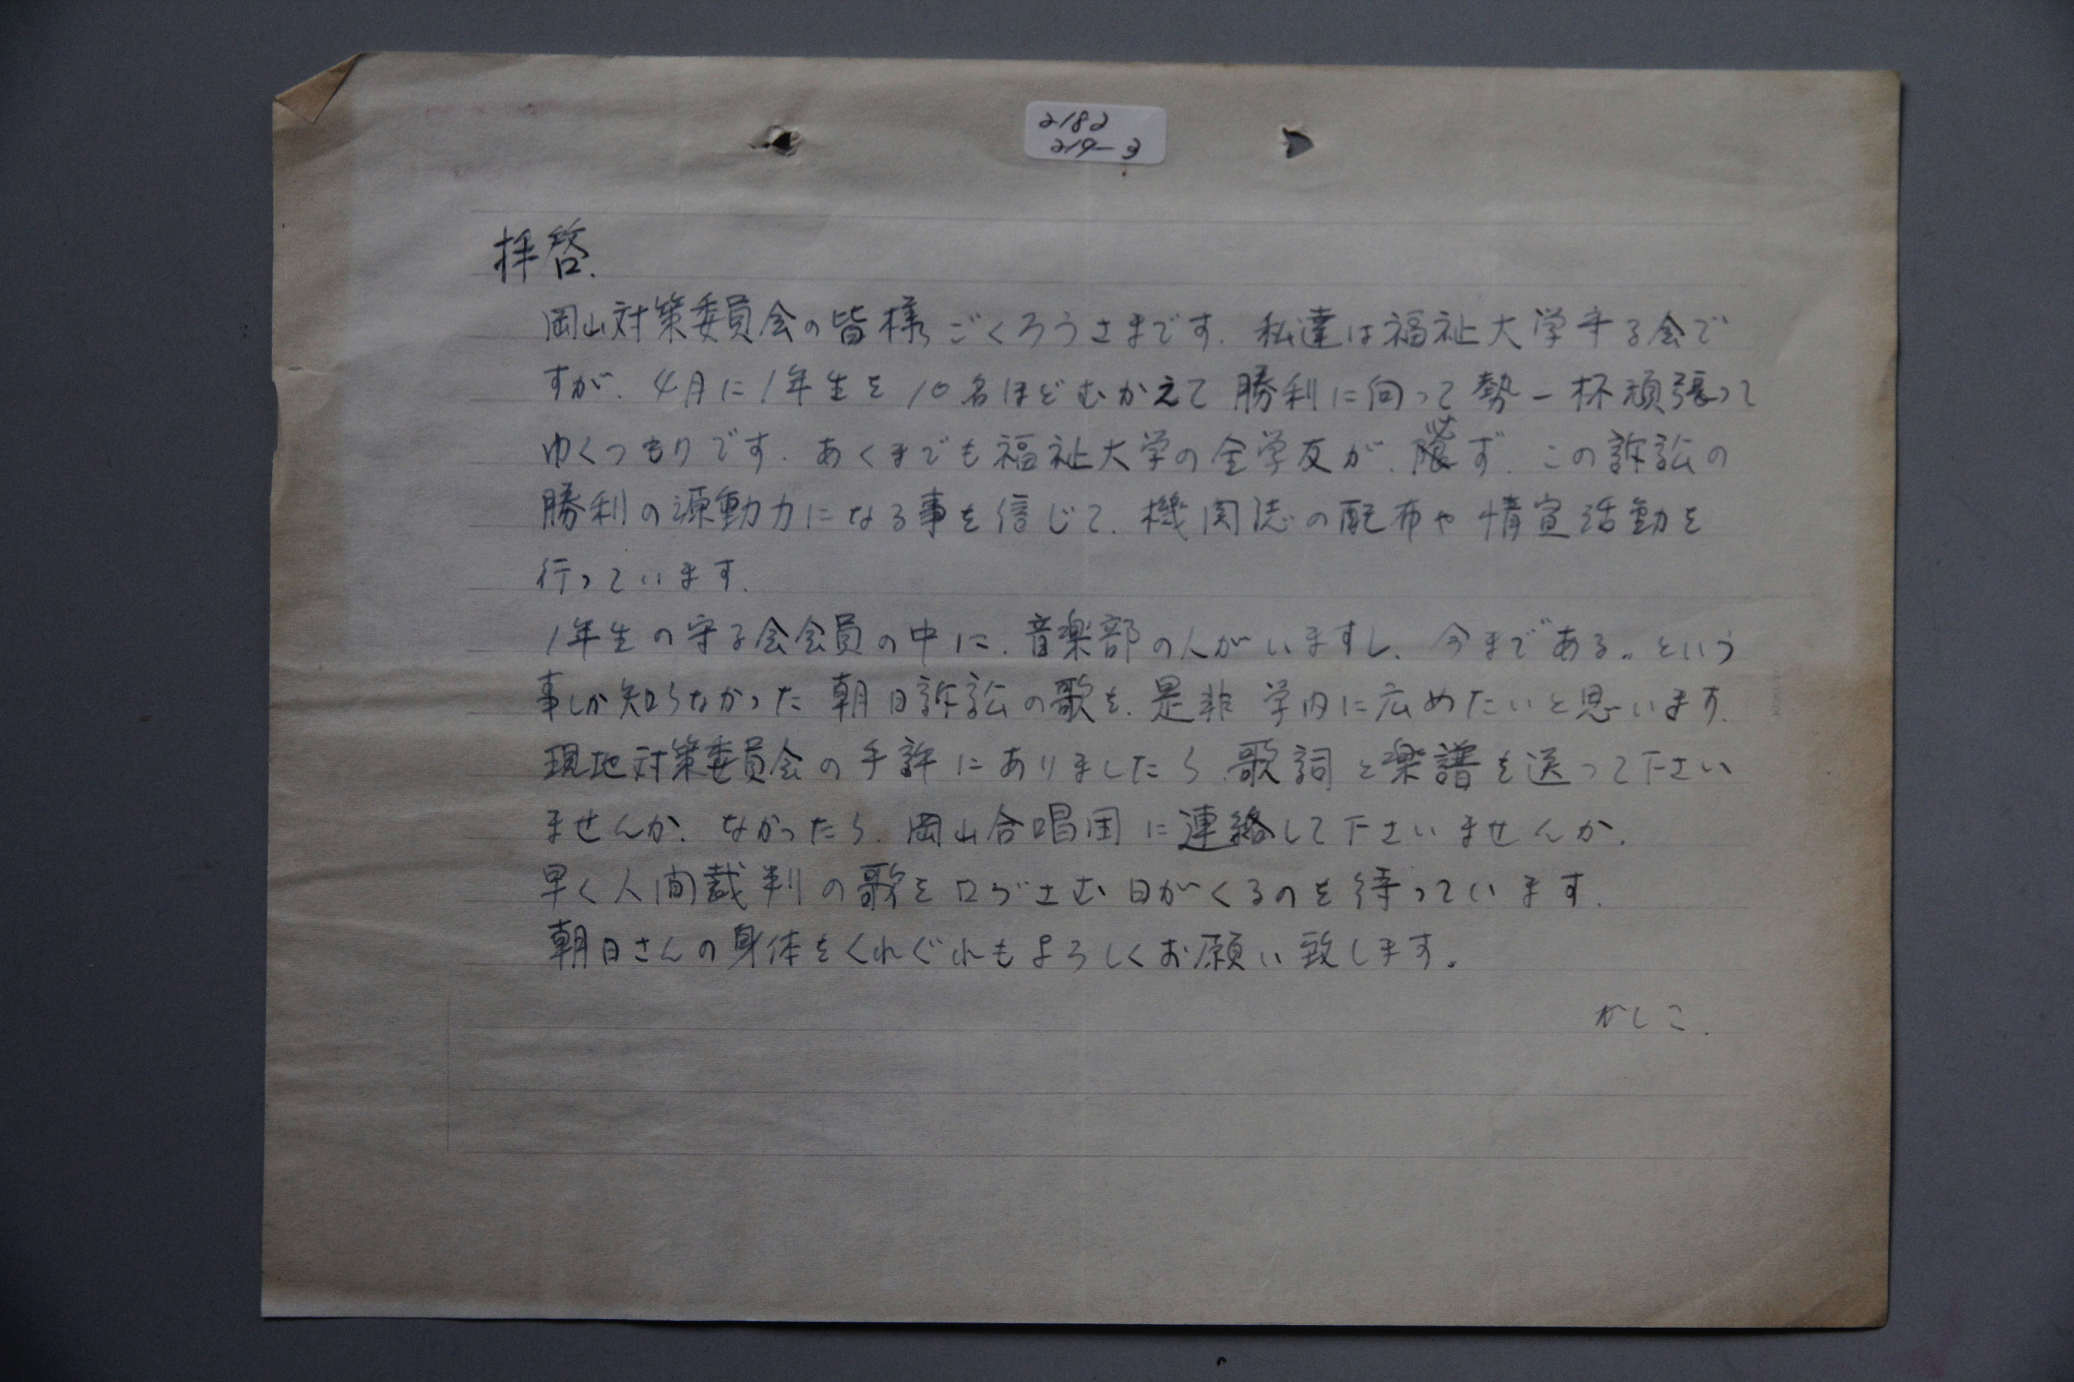 2182
219-3
拝啓.
岡山対策委員会の皆様、ごくろうさまです. 私達は福祉大学守る会で
すが. 4月に1年生を10名ほどむかえて勝利に向って勢一杯頑張って
ゆくつもりです. あくまでも福祉大学の全学友が. 必ず. この訴訟の
勝利の源動力になる事を信じて. 機関誌の配布や情宣活動を
行っています.
1年生の守る会会員の中に. 音楽部の人がいますし、今まである。という
事しか知らなかった朝日訴訟の歌を. 是非学内に広めたいと思います.
現地対策委員会の手許にありましたら. 歌詞と楽譜を送って下さい
ませんか. なかったら. 岡山合唱団に連絡して下さいませんか.
早く人間裁判の歌を口ずさむ日がくるのを待っています.
朝日さんの身体をくれぐれもよろしくお願い致します。
かしこ.